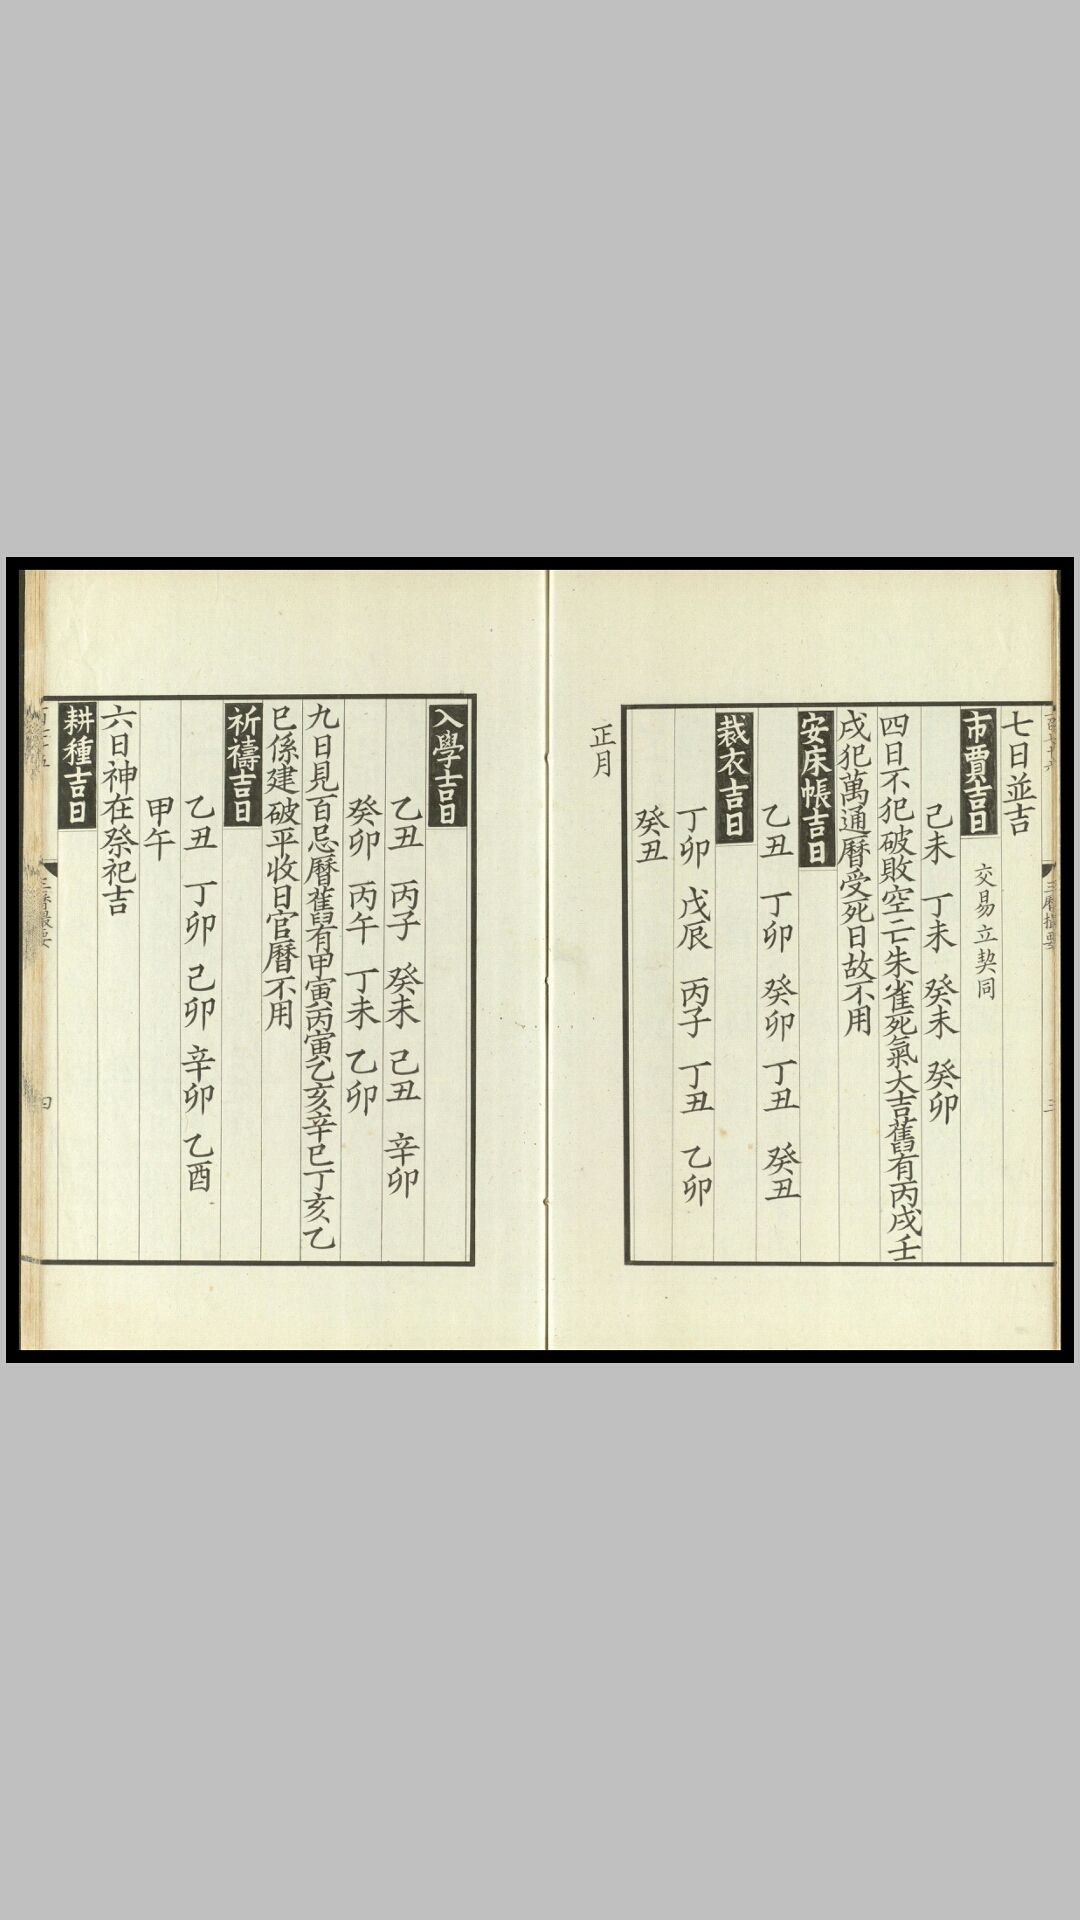 七日並吉
市賈吉日 交易立契同
己未 丁未 癸未 癸卯
四日不犯破敗空亡朱雀死氣大吉舊有丙戌壬
戌犯萬通曆受死日故不用
安床帳吉日
乙丑 丁卯 癸卯 丁丑 癸丑
裁衣吉日
丁卯 戊辰 丙子 丁丑 乙卯
癸丑
正月
入學吉日
乙丑 丙子 癸未 己丑 辛卯
癸卯 丙午 丁未 乙卯
九日見百忌曆舊有甲寅丙寅乙亥辛巳丁亥乙
巳係建破平收日官曆不用
祈禱吉日
乙丑 丁卯 己卯 辛卯 乙酉
甲午
六日神在祭祀吉
耕種吉日